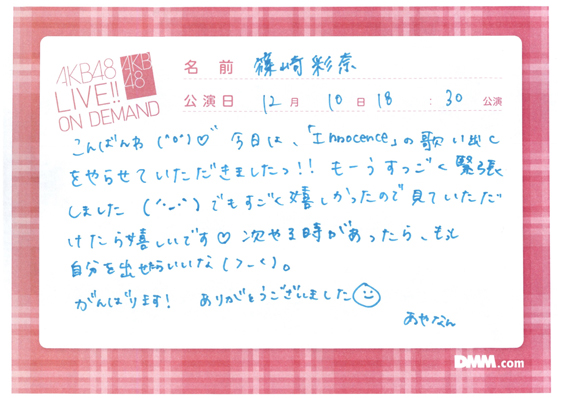 AKB48
LIVE!!
ON DEMAND
AKB
48
名前 篠崎彩奈
公演日 12月10日18:30公演
こんばんわ (^o^)♡ 今日は、「Innocence」の歌い出し
をやらせていただきましたっ!! もーうすっごく緊張
しました (´・_・`) でもすごく嬉しかったので見ていただ
けたら嬉しいです♡ 次やる時があったら、もっと
自分を出せたらいいな (>_<)。
がんばります! ありがとうございました
あやなん
DMM.com